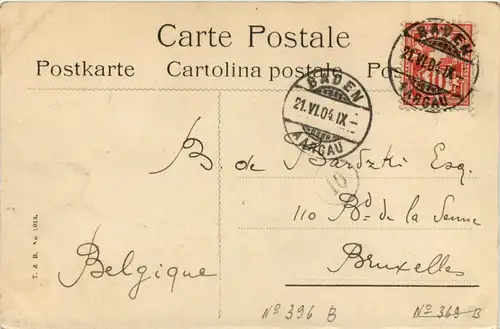 Carte Postale
Postkarte Cartolina postale Po
BADEN
21.VI.04.IX-
AARGAU
BADEN
21.VI.04.IX-
AARGAU
10
B. de Esq.
110 Bd. de la Senne
Belgique
Bruxelles
No 396 B
No 369 B